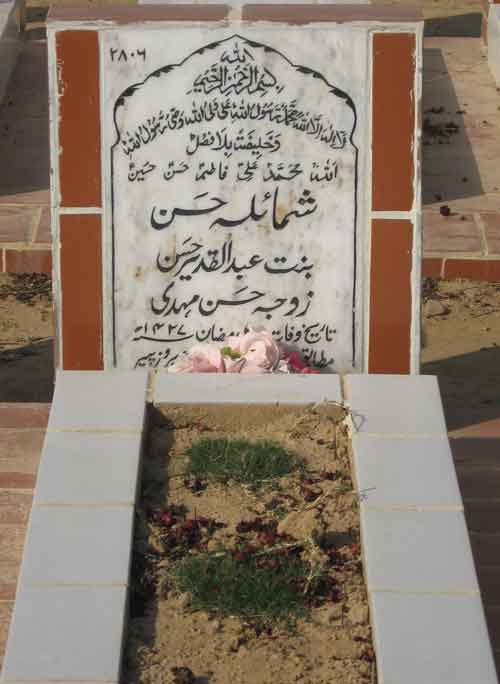 ۲۸۰۶
اللہ
بسم اللہ الرحمن الرحیم
لا الہ الا اللہ محمد رسول اللہ علی ولی اللہ وصی رسول اللہ
وخلیفتہ بلا فصل
اللہ محمد علی فاطمہ حسن حسین
شمائلہ حسن
بنت عبدالقدیر حسن
زوجہ حسن مہدی
تاریخ وفات رمضان ۱۴۲۷ھ
بروز پیر